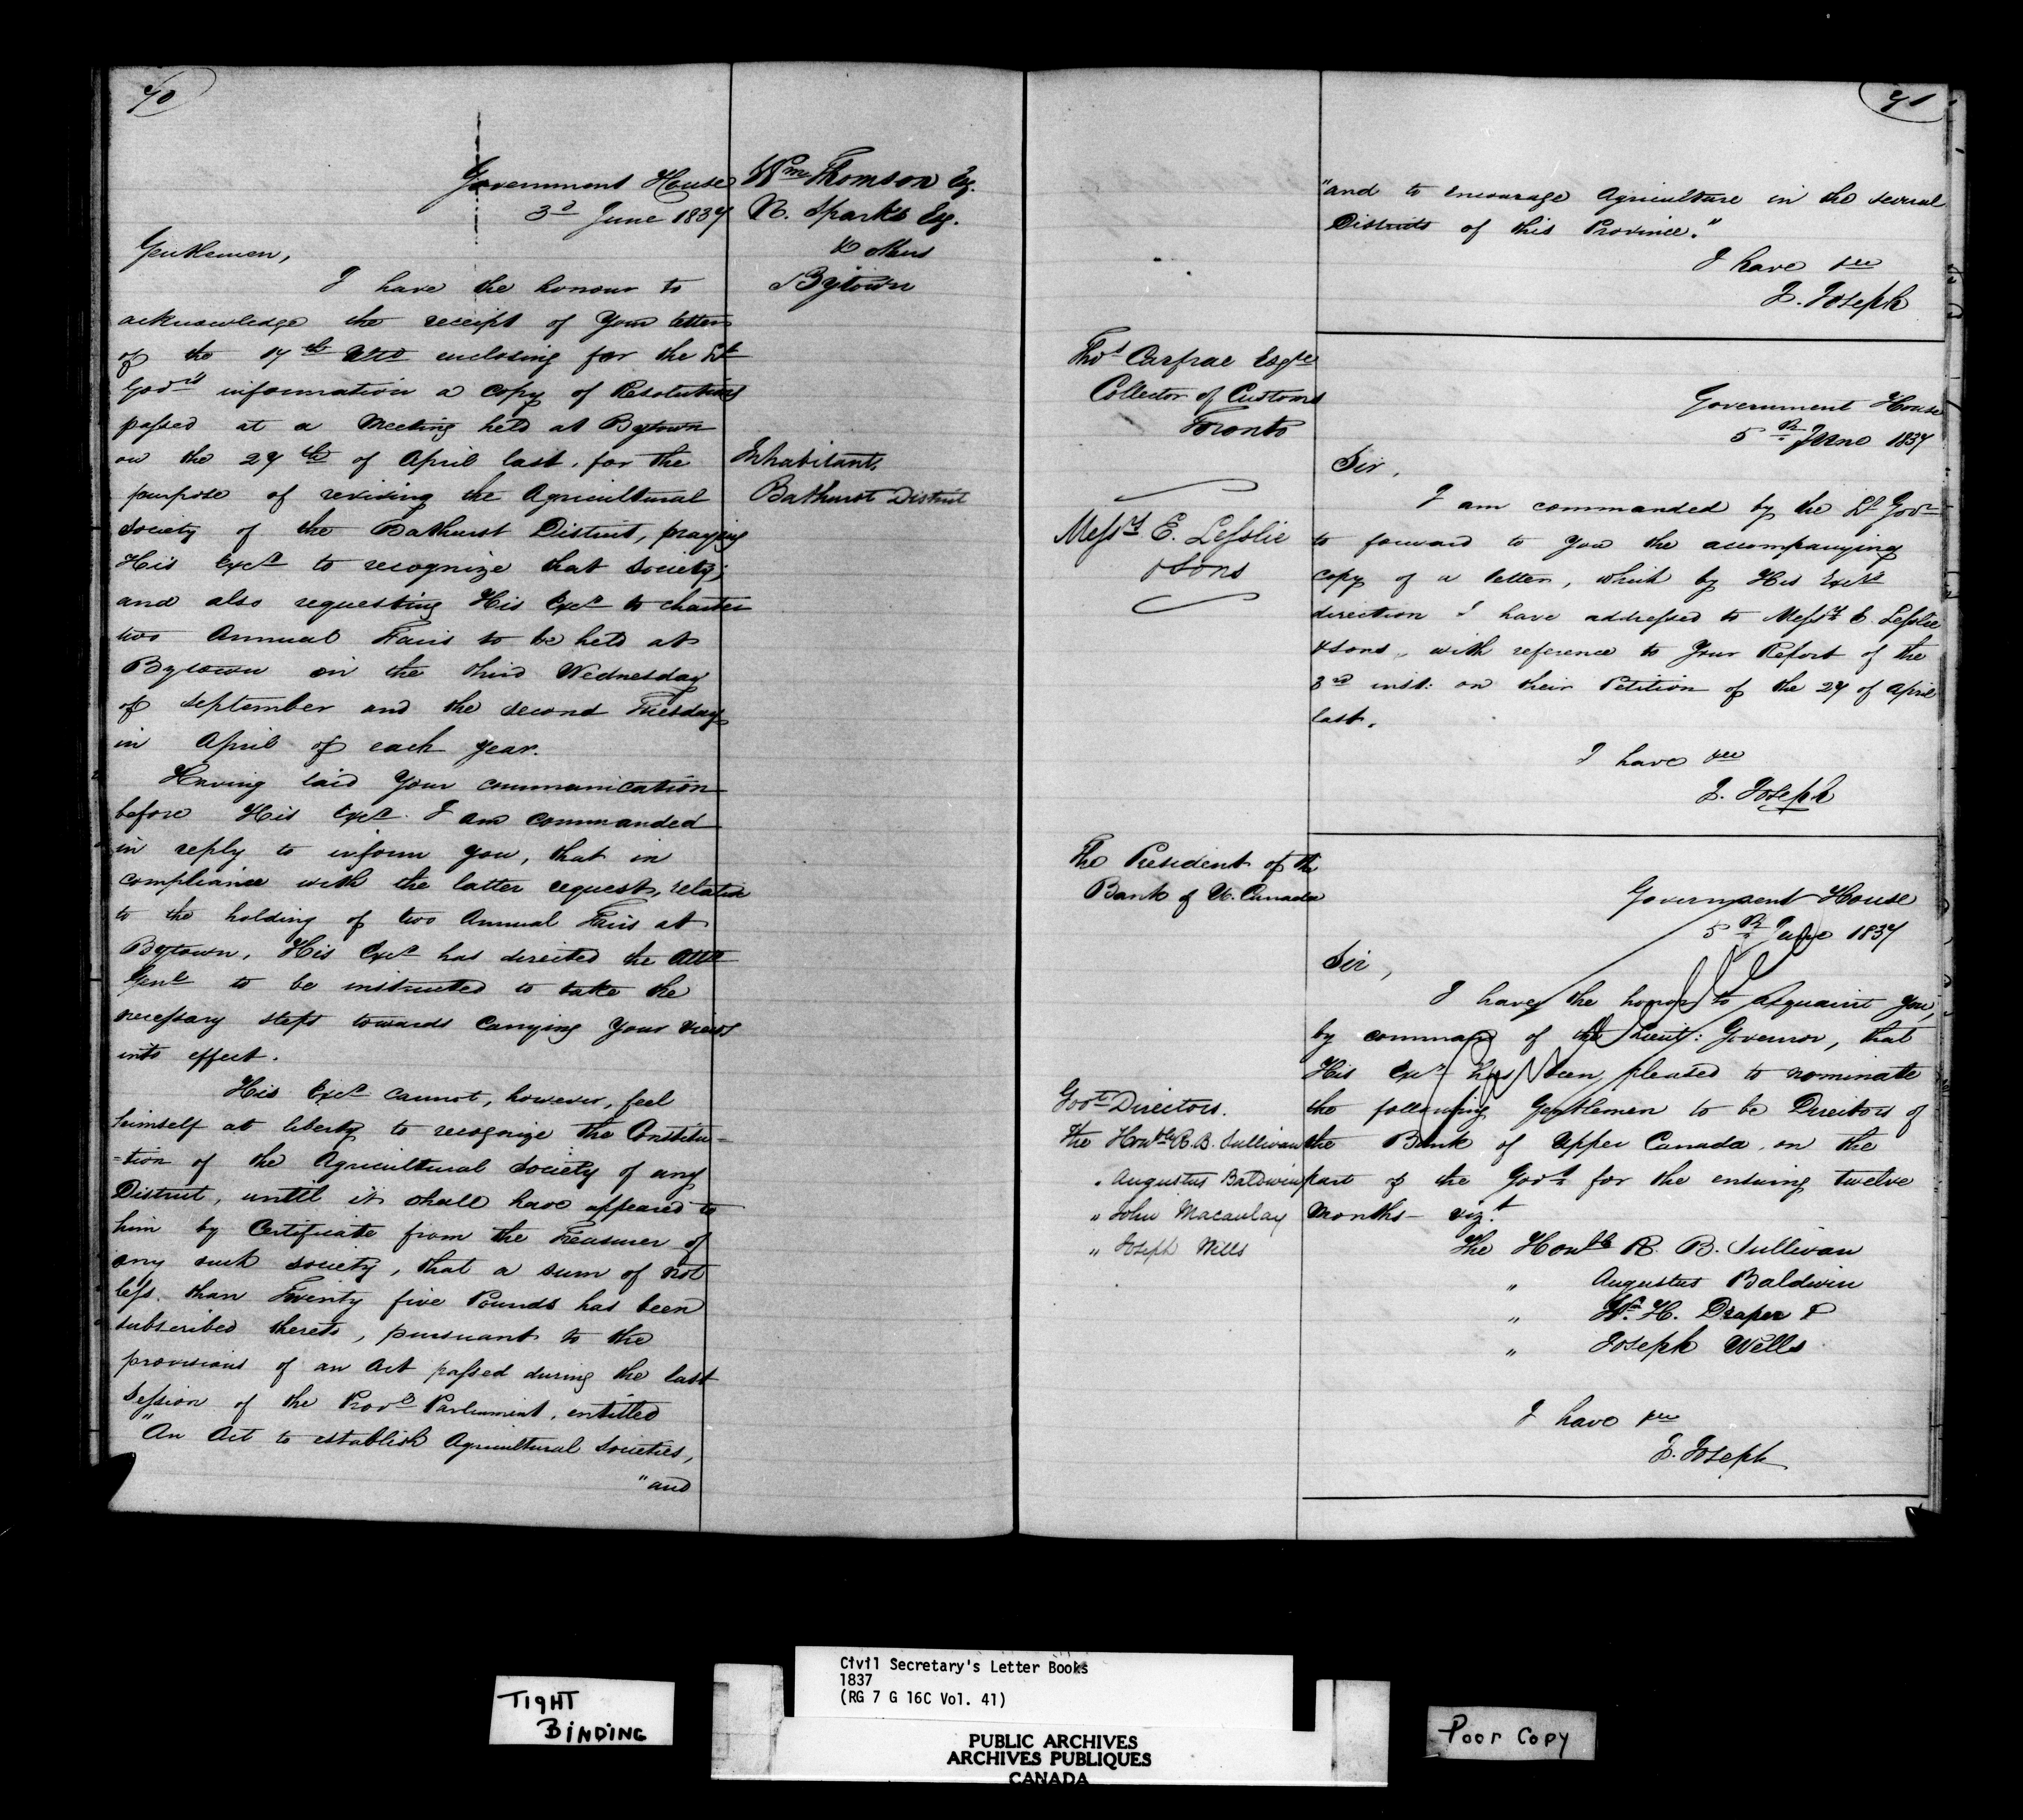 70
Government House
3d June 1837
Wm Thomson Esq.
N. Sparks Esq.
& others
Bytown
Gentlemen,
I have the honour to
acknowledge the receipt of Your letter
of the 17th Ulto enclosing for the Lt
Govrs information a copy of Resolutions
passed at a Meeting held at Bytown
on the 27th of April last, for the
purpose of reviving the Agricultural
Society of the Bathurst District, praying
His Excy to recognize that Society;
and also requesting His Excy to charter
two Annual Fairs to be held at
Bytown on the third Wednesday
of September and the second Tuesday
in April of each year.
Inhabitants
Bathurst District
Having laid Your communication
before His Excy I am commanded
in reply to inform you, that in
compliance with the latter request, relative
to the holding of two Annual Fairs at
Bytown, His Excy has directed the Atty
Genl to be instructed to take the
necessary steps towards Carrying Your views
into effect.
His Excy cannot, however, feel
himself at liberty to recognize the Constitu-
-tion of the Agricultural Society of any
District, until it shall have appeared to
him by Certificate from the Treasurer of
any such Society, that a sum of not
less than Twenty five Pounds has been
subscribed thereto, pursuant to the
provisions of an Act passed during the last
Session of the Provl Parliament, entitled
"An Act to establish Agricultural Societies,
"and
71
"and to encourage Agriculture in the several
Districts of this Province."
I have &ec
J. Joseph
Thos Carfrae Esqre
Collector of Customs
Toronto
Messrs E. Lesslie
& Sons
Government House
5th June 1837
Sir,
I am commanded by the Lt Govr
to forward to you the accompanying
copy of a letter, which by His Excys
direction I have addressed to Messrs E. Lesslie
& Sons, with reference to Your Report of the
3rd inst: on their Petition of the 27 of April
last.
I have &ec
J. Joseph
The President of the
Bank of U. Canada
Government House
5th June 1837
Sir,
I have the honor to acquaint you,
by command of the Lieut: Governor, that
His Excy has been pleased to nominate
the following Gentlemen to be Directors of
the Bank of Upper Canada, on the
part of the Govt for the ensuing twelve
Months - vizt
The Honble R. B. Sullivan
" Augustus Baldwin
" Wm H. Draper &
" Joseph Wells
I have &ec
J. Joseph
Govt Directors.
The Honble R. B. Sullivan
" Augustus Baldwin
" John Macaulay
" Joseph Wells
TIGHT
BINDING
Civil Secretary's Letter Books
1837
(RG 7 G 16C Vol. 41)
PUBLIC ARCHIVES
ARCHIVES PUBLIQUES
CANADA
Poor Copy